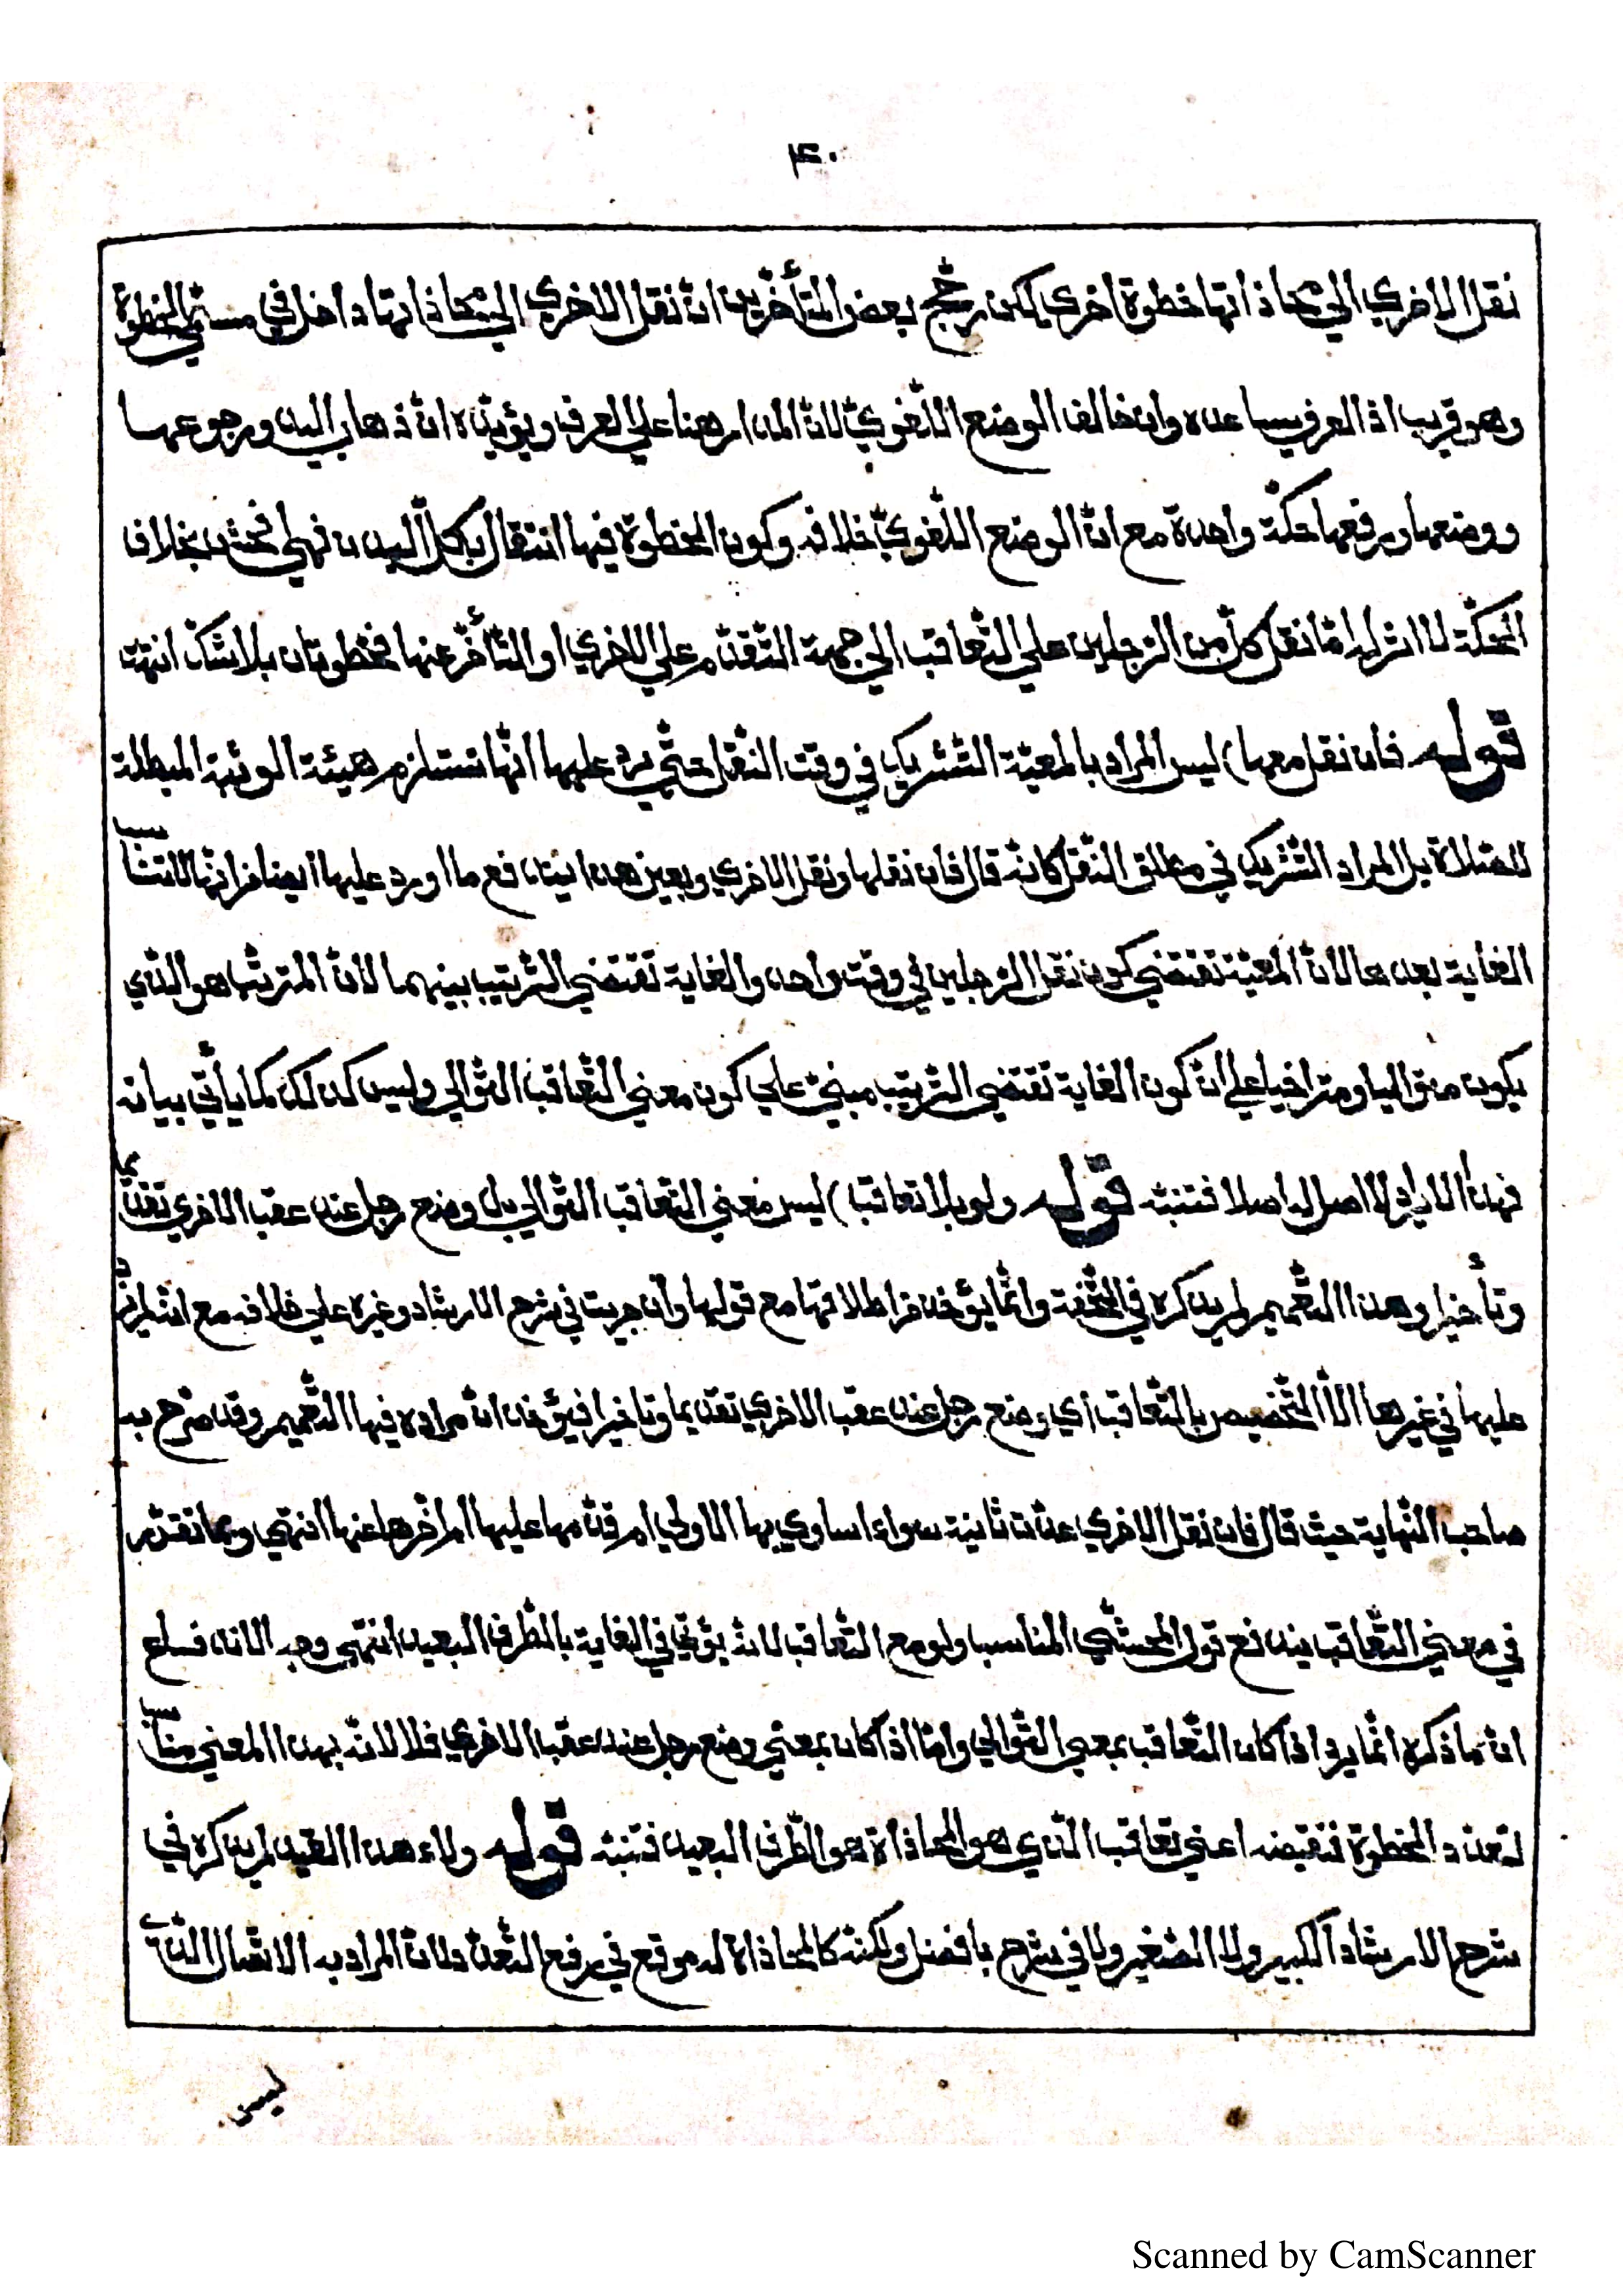 ۴۰
نقل الاخرى الى محاذاتها خطوة اخرى لكن رجّح بعض المتأخّرين انّ نقل الاخرى الى محاذاتها داخل في مسمّى الخطوة
وهو قريب اذ العرف يساعده وان خالف الوضع اللّغويّ لانّ المدار هنا على العرف ويؤيّده انّ ذهاب اليد ورجوعها
ووضعها ورفعها حكّة واحدة مع انّ الوضع اللّغويّ خلافه وكون الخطوة فيها انتقال بكلّ البدن فهي افحش بخلاف
الحكّة لا اثر له امّا نقل كلّ من الرّجلين على التّعاقب الى جهة التّقدّم على الاخرى او التّأخّر عنها فخطوتان بلا شكّ انتهت
قوله فان نقل معها) ليس المراد بالمعيّة التّشريك في وقت النّقل حتّى يرد عليها انّها تستلزم هيئة الوثبة المبطلة
للصّلاة بل المراد التّشريك في مطلق النّقل كانّه قال فان نقلها ونقل الاخرى وبعين هذا يندفع ما اورد عليها ايضا من انّها لا تناسب
الغاية بعدها لانّ المعيّة تقتضي كون نقل الرّجلين في وقت واحد والغاية تقتضي التّرتيب بينهما لانّ المترتّب هو الّذي
يكون متواليا ومتراخيا على انّ كون الغاية تقتضي التّرتيب مبنيّ على كون معنى التّعاقب التّوالي وليس كذلك كما يأتي بيانه
فهذا الايراد لا اصل له اصلا فتنبّه قوله ولو بلا تعاقب) ليس معنى التّعاقب التّوالي بل وضع رجل عند عقب الاخرى تقدّما
وتأخيرا وهذا التّعميم لم يذكره في التّحفة وانّما يؤخذ من اطلاقها مع قولها وان جريت في شرح الارشاد وغيره على خلافه مع انّه لم يزد
عليها في غيرها الاّ التّخصيص بالتّعاقب أي وضع رجل عند عقب الاخرى تقديما وتأخيرا فيؤخذ انّ مراده فيها التّعميم وقد صرّح به
صاحب النّهاية حيث قال فان نقل الاخرى عدّت ثانية سواء اساوى بها الاولى ام قدّمها عليها ام اخّرها عنها انتهى وبما تقرّر
في معنى التّعاقب يندفع قول المحشّي المناسب ولو مع التّعاقب لانّه يؤتى في الغاية بالطّرف البعيد انتهى وجه الاندفاع
انّ ما ذكره انّما يرد اذا كان التّعاقب بمعنى التّوالي وامّا اذا كان بمعنى وضع رجل عند عقب الاخرى فلا لانّه بهذا المعنى مناسب
لتعدّد الخطوة فنقيضه اعني تعاقب الّذي هو المحاذاة هو الطّرف البعيد فتنبّه قوله ولاء هذا القيد لم يذكره في
شرح الارشاد الكبير ولا الصّغير ولا في شرح بافضل ولكنّه كالمحاذاة له موقع في رفع التّعدّد لانّ المراد به الاتّصال الّذي
ليس
Scanned by CamScanner